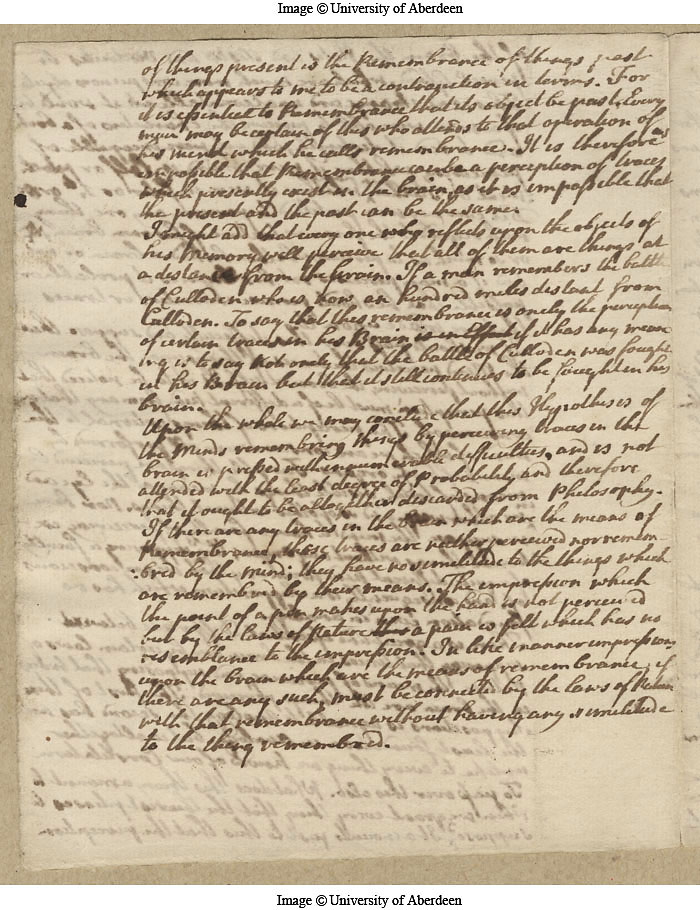 Image © University of Aberdeen
of things present is the Remembrance of things past
which appears to me to be a contradiction in terms. For
it is essential to Remembrance that its object be past. Every
man may be certain of this who attends to that operation of
his mind which he calls remembrance. It is therefore as
impossible that Remembrance can be a perception of traces
which presently exist in the brain, as it is impossible that
the present and the past can be the same.
I might add that every one who reflects upon the objects of
his Memory will perceive that all of them are things at
a distance from the brain. If a man remembers the battle
of Culloden who is now an hundred miles distant from
Culloden. To say that this remembrance is onely the perception
of certain traces in his Brain is in Effect if it has any mean
ing is to say Not onely that the battle of Culloden was fought
in his Brain but that it still continues to be fought in his
brain.
Upon the whole we may conclude that this Hypothesis of
the Minds remembring things by perceiving traces in the
brain is pressed with innumerable difficulties, and is not
attended with the least degree of Probability and therefore
that it ought to be altogether discarded from Philosophy.
If there are any traces in the Brain which are the means of
Remembrance, these traces are neither perceived nor remem-
:bred by the mind; they have no similitude to the things which
are remembred by their means. The impression which
the point of a pin makes upon the hand is not perceived
but by the laws of Nature a pain is felt which has no
resemblance to the impression. In like manner impressions
upon the brain which are the means of remembrance, if
there are any such, must be connected by the laws of Nature
with that remembrance without having any similitude
to the thing remembred.
Image © University of Aberdeen